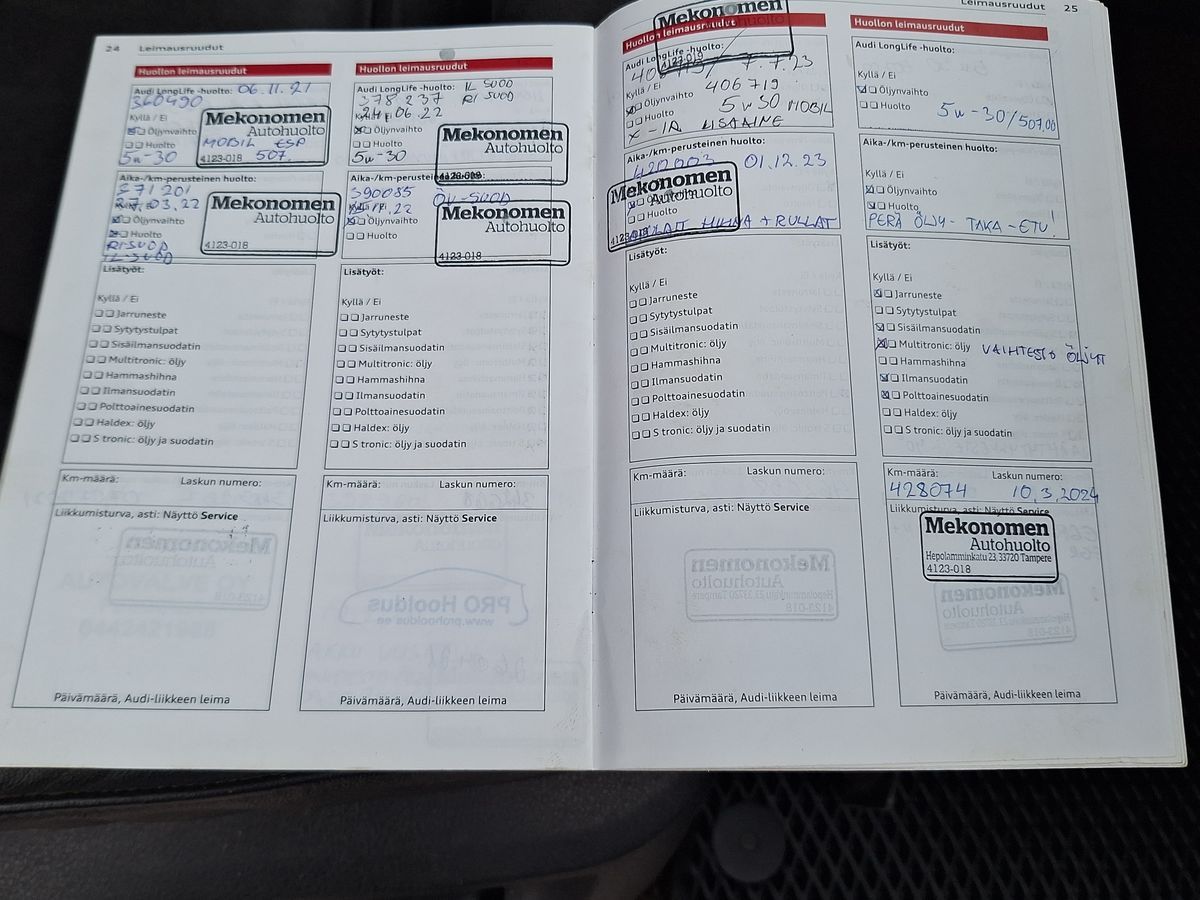 24 Leimausruudut
Huollon leimausruudut
Audi LongLife -huolto: 06.11.21
360490
Kyllä / Ei
Öljynvaihto
Huolto
5w-30
Mekonomen
Autohuolto
MOBIL ESP
4123-018 507.
Aika-/km-perusteinen huolto:
371201
27.03.22
Öljynvaihto
Huolto
RI-SUOD
IL-SUOD
Mekonomen
Autohuolto
4123-018
Lisätyöt:
Kyllä / Ei
Jarruneste
Sytytystulpat
Sisäilmansuodatin
Multitronic: öljy
Hammashihna
Ilmansuodatin
Polttoainesuodatin
Haldex: öljy
S tronic: öljy ja suodatin
Km-määrä: Laskun numero:
Liikkumisturva, asti: Näyttö Service
Päivämäärä, Audi-liikkeen leima
Huollon leimausruudut
Audi LongLife -huolto: IL SUOD
378237 RI SUOD
06.22
Öljynvaihto
Huolto
5w-30
Mekonomen
Autohuolto
4123-018
390085 ÖL-SUOD
Öljynvaihto
Huolto
Mekonomen
Autohuolto
4123-018
Lisätyöt:
Kyllä / Ei
Jarruneste
Sytytystulpat
Sisäilmansuodatin
Multitronic: öljy
Hammashihna
Ilmansuodatin
Polttoainesuodatin
Haldex: öljy
S tronic: öljy ja suodatin
Km-määrä: Laskun numero:
Liikkumisturva, asti: Näyttö Service
Päivämäärä, Audi-liikkeen leima
Leimausruudut 25
Huollon leimausruudut
Mekonomen
Autohuolto
Audi LongLife -huolto:
7.7.23
Kyllä / Ei 406719
Öljynvaihto 5w30 MOBIL
Huolto
X-IA LISÄAINE
Aika-/km-perusteinen huolto:
420003 01.12.23
Mekonomen
Autohuolto
Huolto
HIHNA + RULLAT
Lisätyöt:
Kyllä / Ei
Jarruneste
Sytytystulpat
Sisäilmansuodatin
Multitronic: öljy
Hammashihna
Ilmansuodatin
Polttoainesuodatin
Haldex: öljy
S tronic: öljy ja suodatin
Km-määrä: Laskun numero:
Liikkumisturva, asti: Näyttö Service
Päivämäärä, Audi-liikkeen leima
Huollon leimausruudut
Audi LongLife -huolto:
Kyllä / Ei
Öljynvaihto
Huolto
5w-30/507,00
Aika-/km-perusteinen huolto:
Kyllä / Ei
Öljynvaihto
Huolto
PERÄ ÖLJY- TAKA-ETU!
Lisätyöt:
Kyllä / Ei
Jarruneste
Sytytystulpat
Sisäilmansuodatin
Multitronic: öljy VAIHTEISTO ÖLJYT
Hammashihna
Ilmansuodatin
Polttoainesuodatin
Haldex: öljy
S tronic: öljy ja suodatin
Km-määrä: Laskun numero:
428074 10.3.2024
Liikkumisturva, asti: Näyttö Service
Mekonomen
Autohuolto
Hepolamminkatu 23, 33720 Tampere
4123-018
Päivämäärä, Audi-liikkeen leima